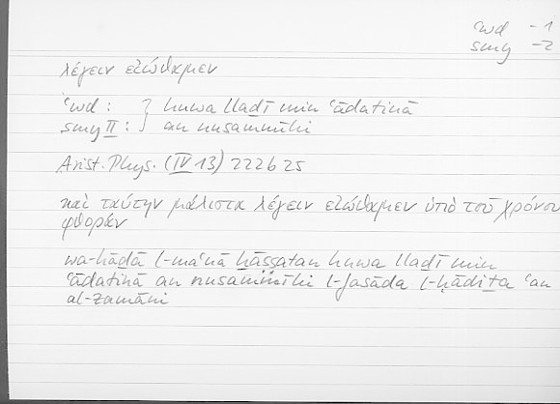 ʿwd - 1
smy - 2
λέγειν εἰώθαμεν
ʿwd : } huwa lladī min ʿādatinā
smy II : } an nusammīhi
Arist. Phys. (IV 13) 222b25
καὶ ταύτην μάλιστα λέγειν εἰώθαμεν ὑπὸ τοῦ χρόνου
φθοράν
wa-hāḏā l-maʿnā ḫāṣṣatan huwa llaḏī min
ʿādatinā an nusammīhi l-fasāda l-ḥādiṯa ʿan
al-zamāni